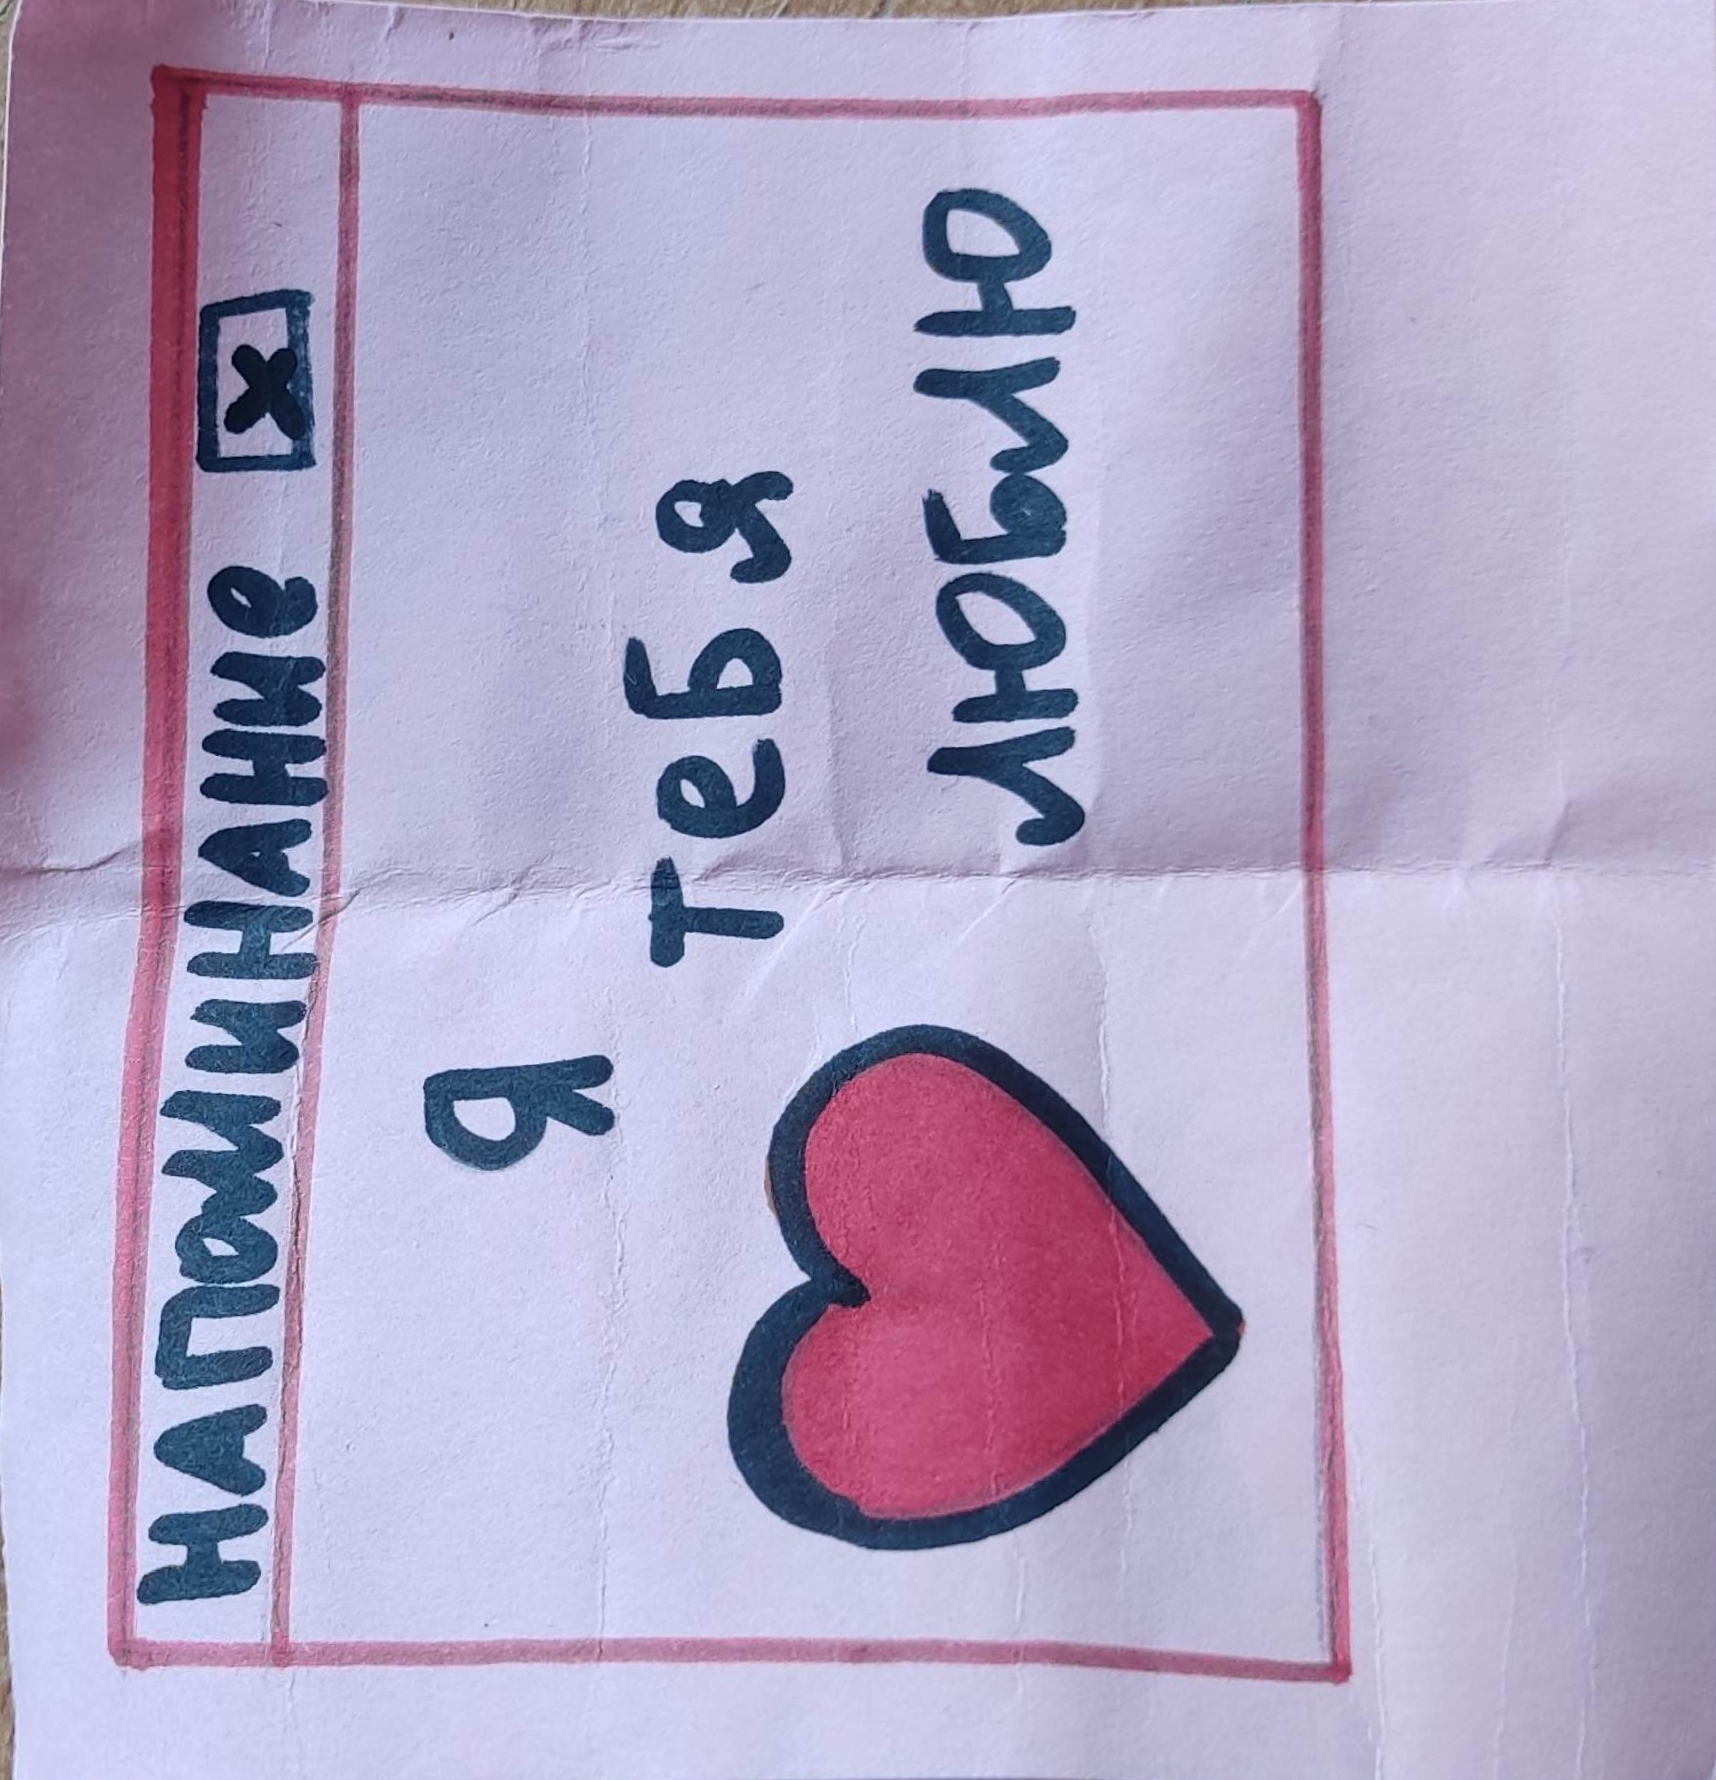 НАПОМИНАНИЕ X
Я
тебя
люблю